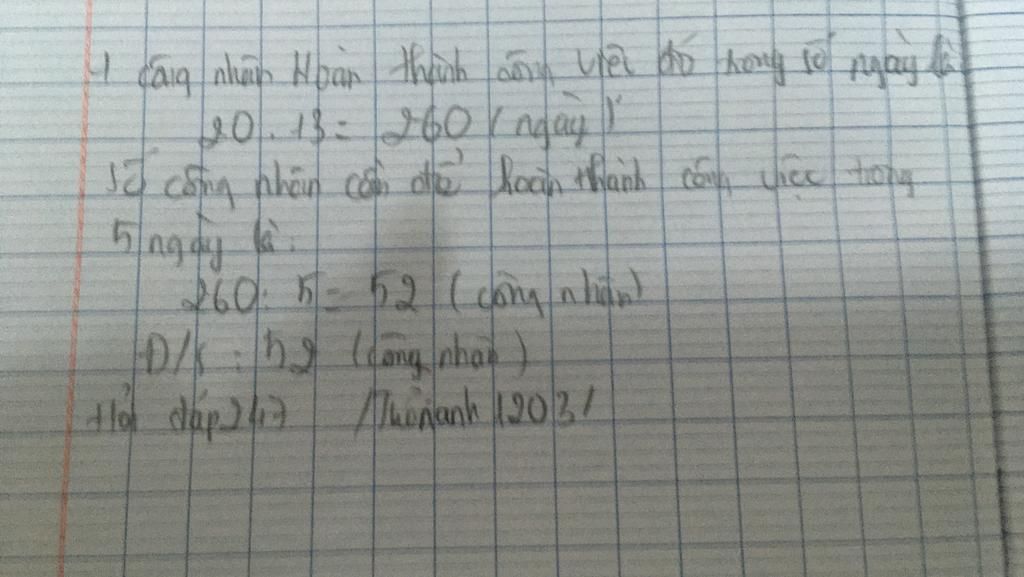 1 công nhân Hoàn thành công việc đó trong số ngày là
20 . 13 = 260 (ngày)
Số công nhân cần để hoàn thành công việc trong
5 ngày là:
260 : 5 = 52 (công nhân)
Đ/S : 52 (công nhân)
Hỏi đáp 247